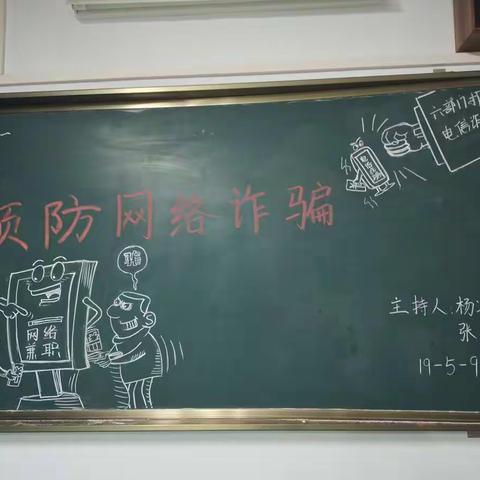 六部门打
电信诈
预防网络诈骗
骗
网络
兼职
主持人:杨
张
19-5-9